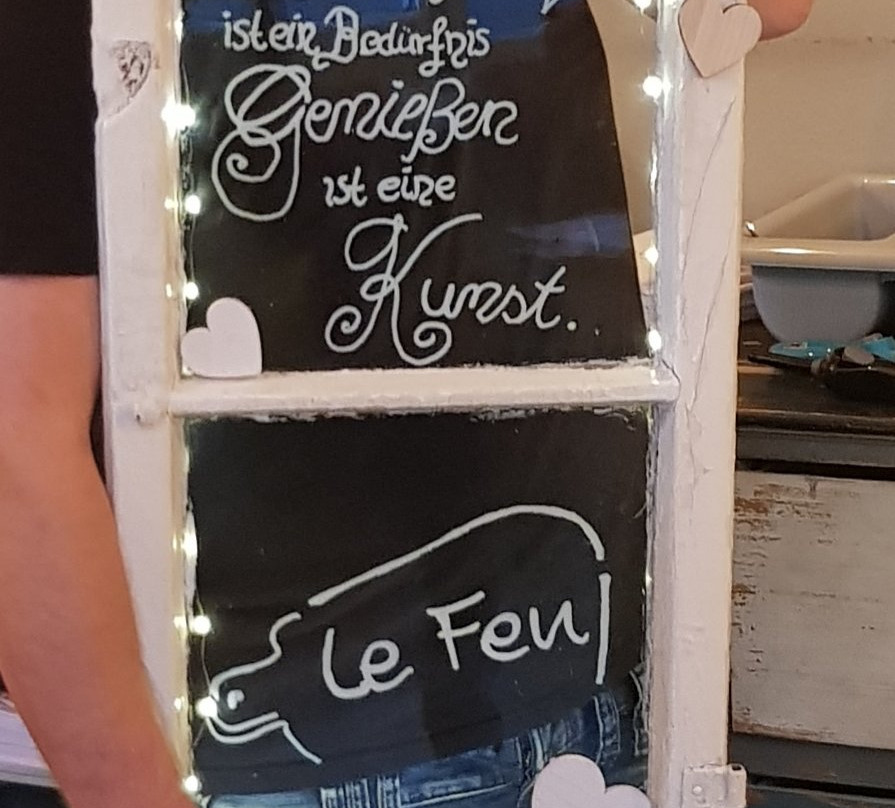 ist ein Bedürfnis
Genießen
ist eine
Kunst.
le Feu